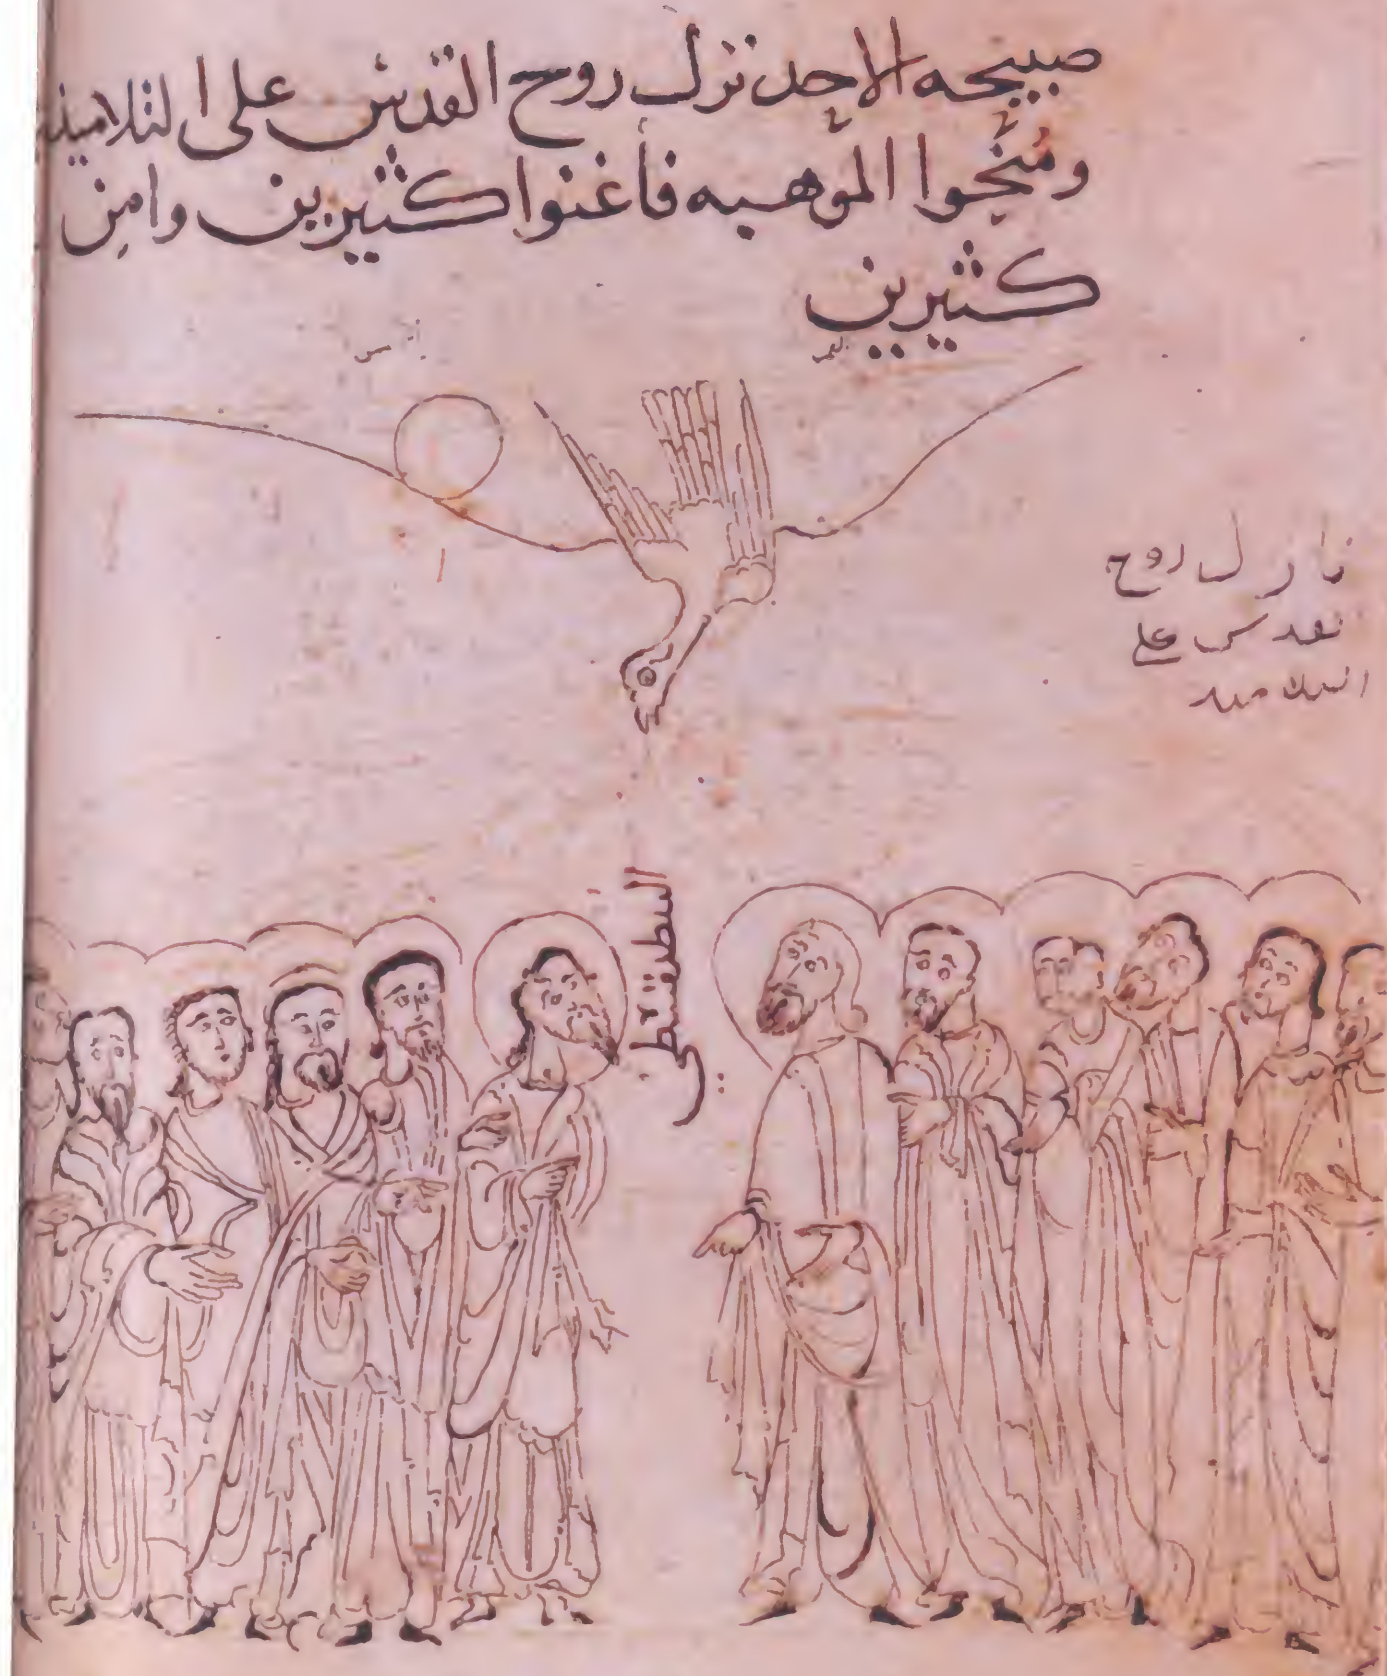 صبيحه الاحد نزل روح القدس على التلاميذ
ومُنحوا الموهبه فأغنوا كثيرين وامن
كثيرين
نازل روح
لقدس على
التلاميد
البنطيقسطي